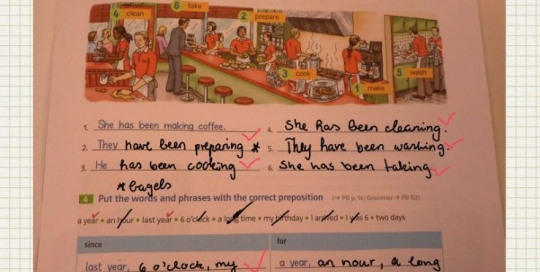 6 take
4 clean
2 prepare
3 cook
1 make
5 wash
1. She has been making coffee.
4. She has been cleaning.
2. They have been preparing *
5. They have been washing.
3. He has been cooking
6. She has been taking
* bagels
4 Put the words and phrases with the correct preposition (→ PB p. 16; Grammar → PB G2)
a year • an hour • last year • 6 o'clock • a long time • my birthday • I arrived • I was 6 • two days
since
for
last year, 6 o'clock, my
a year, an hour, a long